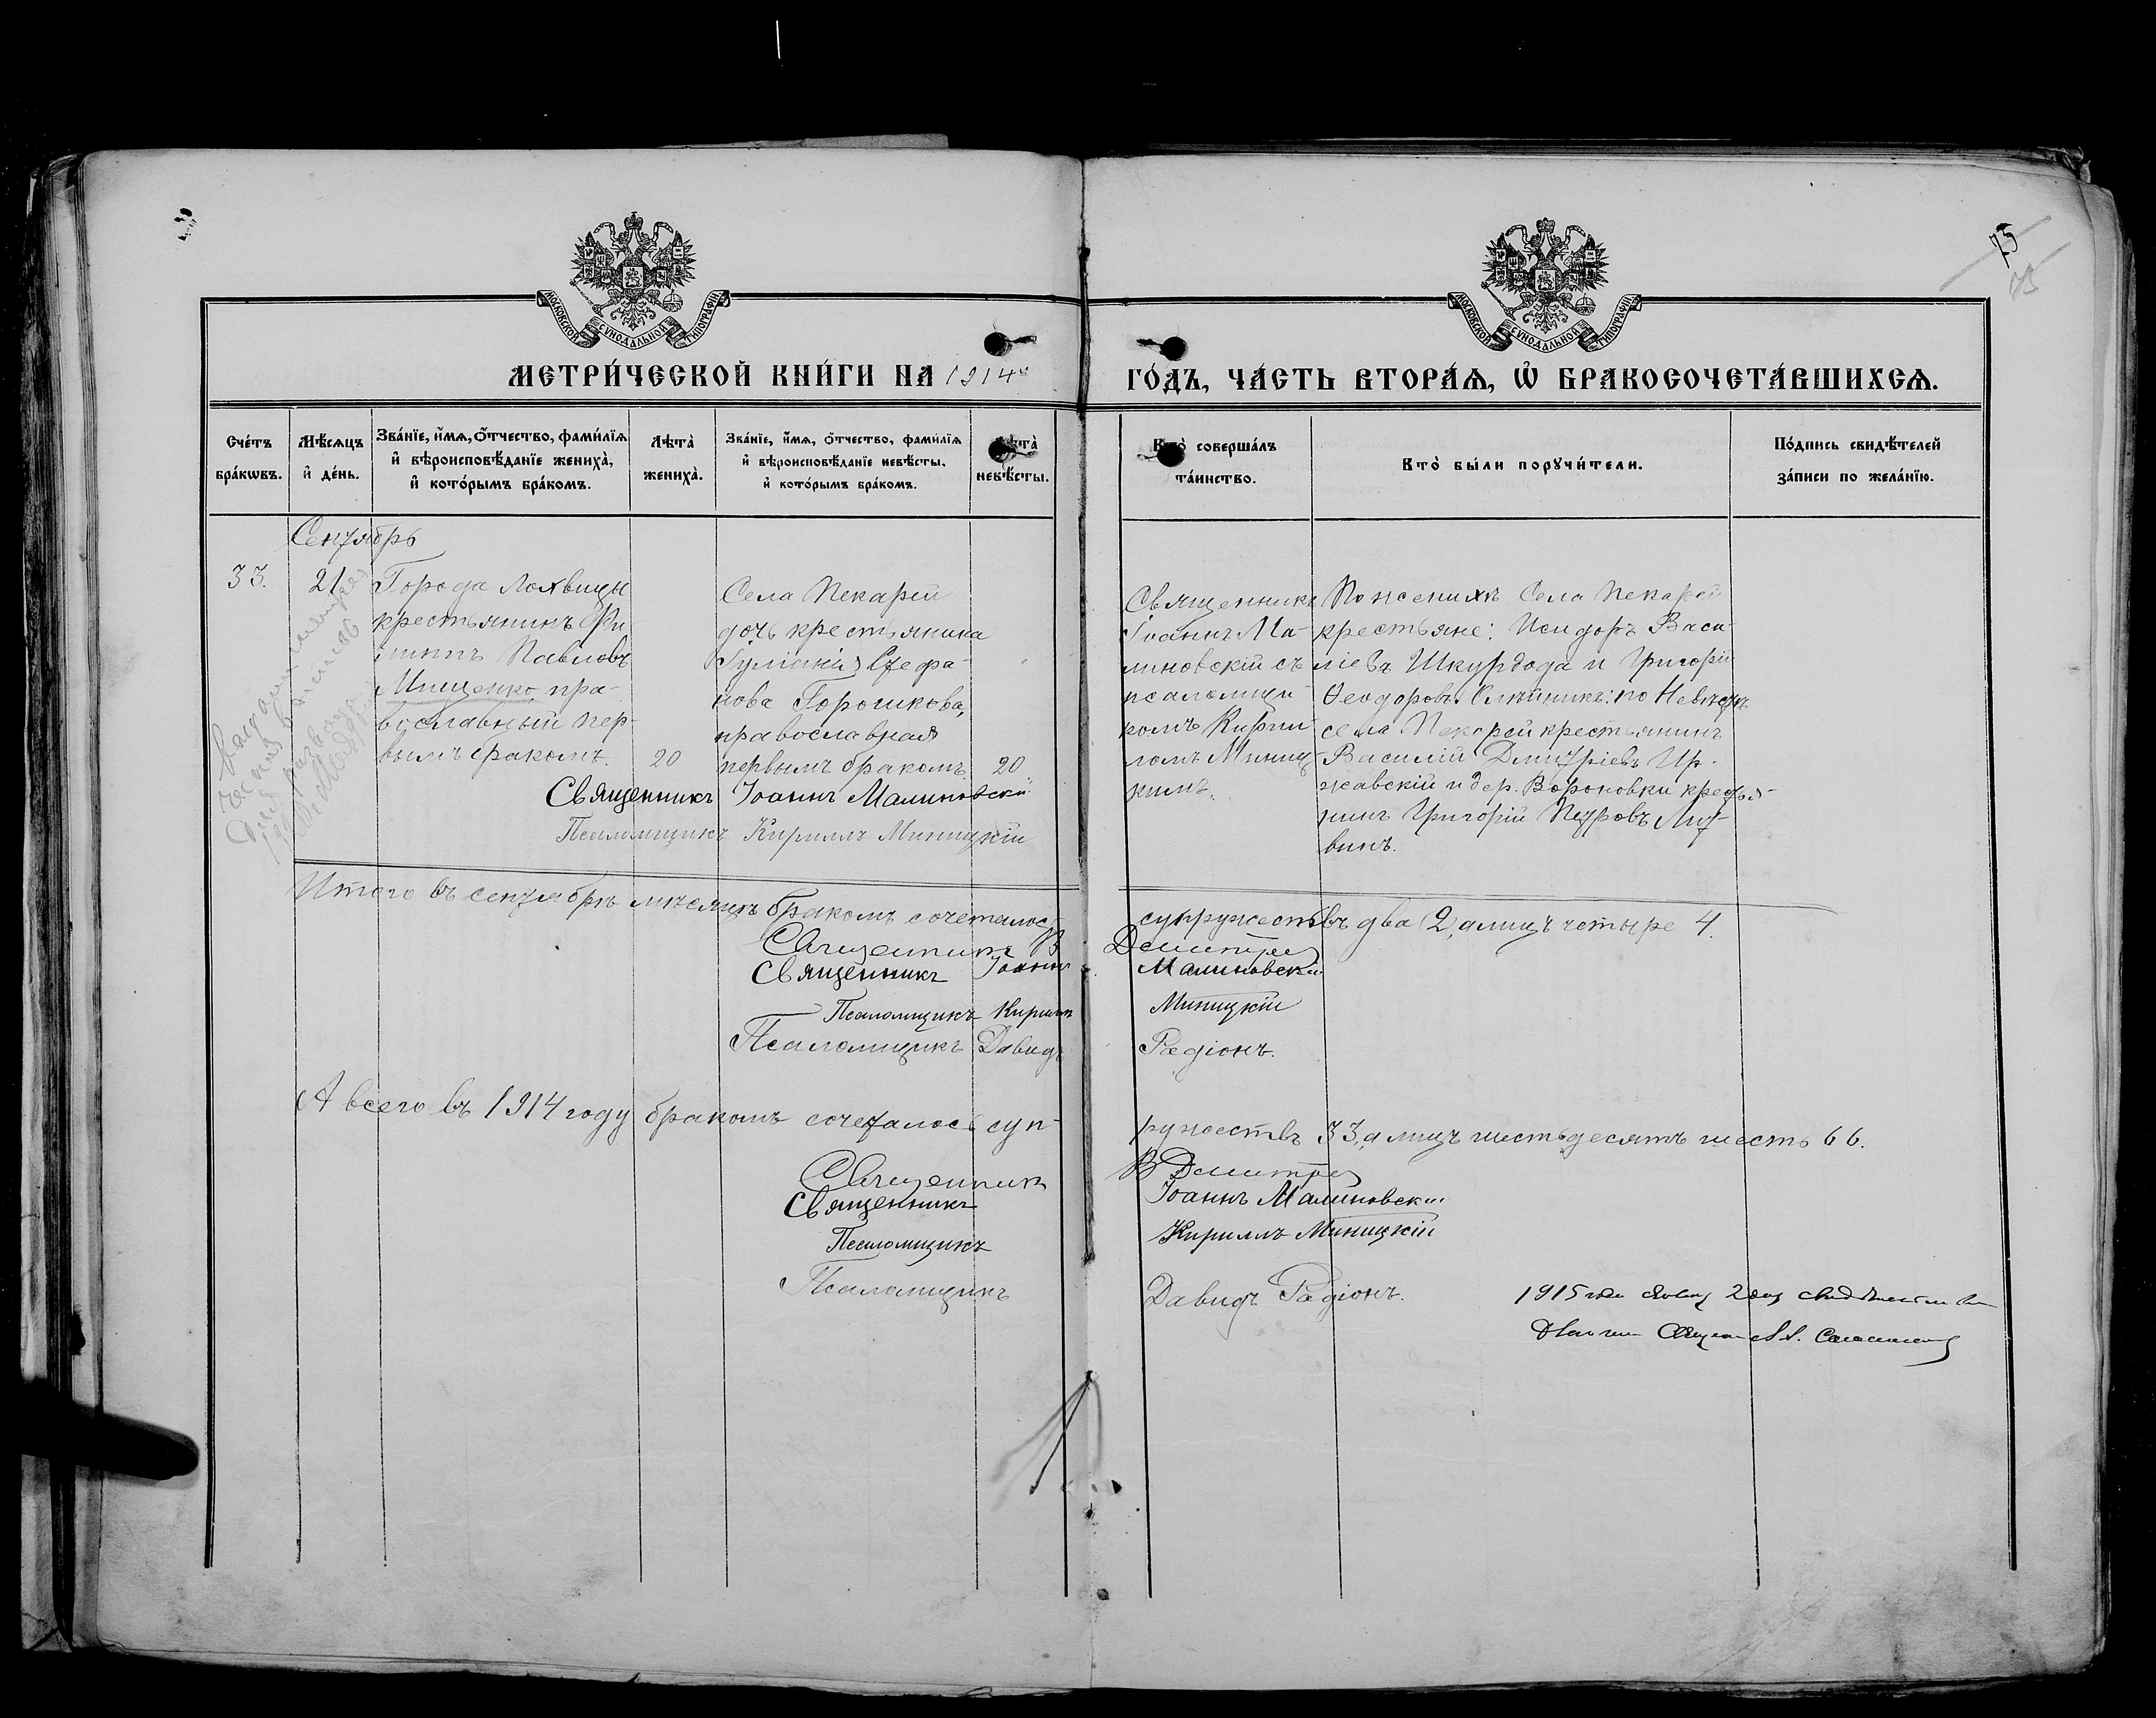 75
МОСКОВСКОЙ СѴНОДАЛЬНОЙ ТИПОГРАФІИ
МОСКОВСКОЙ СѴНОДАЛЬНОЙ ТИПОГРАФІИ
МЕТРИ́ЧЕСКОЙ КНИ́ГИ НА 1914й ГО́ДЪ, ЧА́СТЬ ВТОРА́Ѧ, Ѽ БРАКОСОЧЕТА́ВШИХСѦ.
Сче́тъ бра́кѡвъ.
Мѣ́сѧцъ и҆ де́нь.
Зва́нїе, и҆́мѧ, ѻ҆́тчество, фами́лїѧ
и҆ вѣроисповѣ́данїе жениха̀,
и҆ кото́рымъ бра́комъ.
Лѣта̀ жениха̀.
Зва́нїе, и҆́мѧ, ѻ҆́тчество, фами́лїѧ
и҆ вѣроисповѣ́данїе невѣ́сты,
и҆ кото́рымъ бра́комъ.
Лѣта̀ невѣ́сты.
Кто̀ соверша́лъ та́инство.
Кто̀ бы́ли порꙋчи́тели.
По́дпись свидѣ́телей
за́писи по жела́нїю.
Сентябрь
33.
21
Города Лохвицы
крестьянинъ Фи
липпъ Павловъ
Мищенко, пра-
вославный пер-
вымъ бракомъ.
20
Села Пекарей
дочь крестьянина
Іуліанія Стефа-
нова Горошкова,
православная
первымъ бракомъ
20
Священникъ Іоаннъ Малиновскій
Псаломщикъ Кириллъ Миницкій
Священникъ
Іоаннъ Ма-
линовскій съ
псаломщи-
комъ Кирил-
ломъ Миниц-
кимъ.
По женихѣ Села Пекарей
крестьяне: Исидоръ Васи-
ліевъ Шкурдода и Григорій
Ѳеодоровъ Олѣйникъ: по Невѣстѣ
села Пекарей крестьянинъ
Василій Дмитріевъ Ир-
жавскій и дер. Вороновки крестья-
нинъ Григорій Петровъ Лит-
винъ.
Итого въ сентябрѣ мѣсяцѣ бракомъ сочеталось супружествъ два (2, а лицъ четыре 4.
Священникъ В
Священникъ Іоаннъ Малиновскій
Псаломщикъ Кириллъ Миницкій
Псаломщикъ Давидъ Радіонъ.
А всего въ 1914 году бракомъ сочеталось супружествъ 33, а лицъ шестьдесятъ шесть 66.
Священникъ В
Священникъ Іоаннъ Малиновскій
Псаломщикъ Кириллъ Миницкій
Псаломщикъ Давидъ Радіонъ.
1915 года